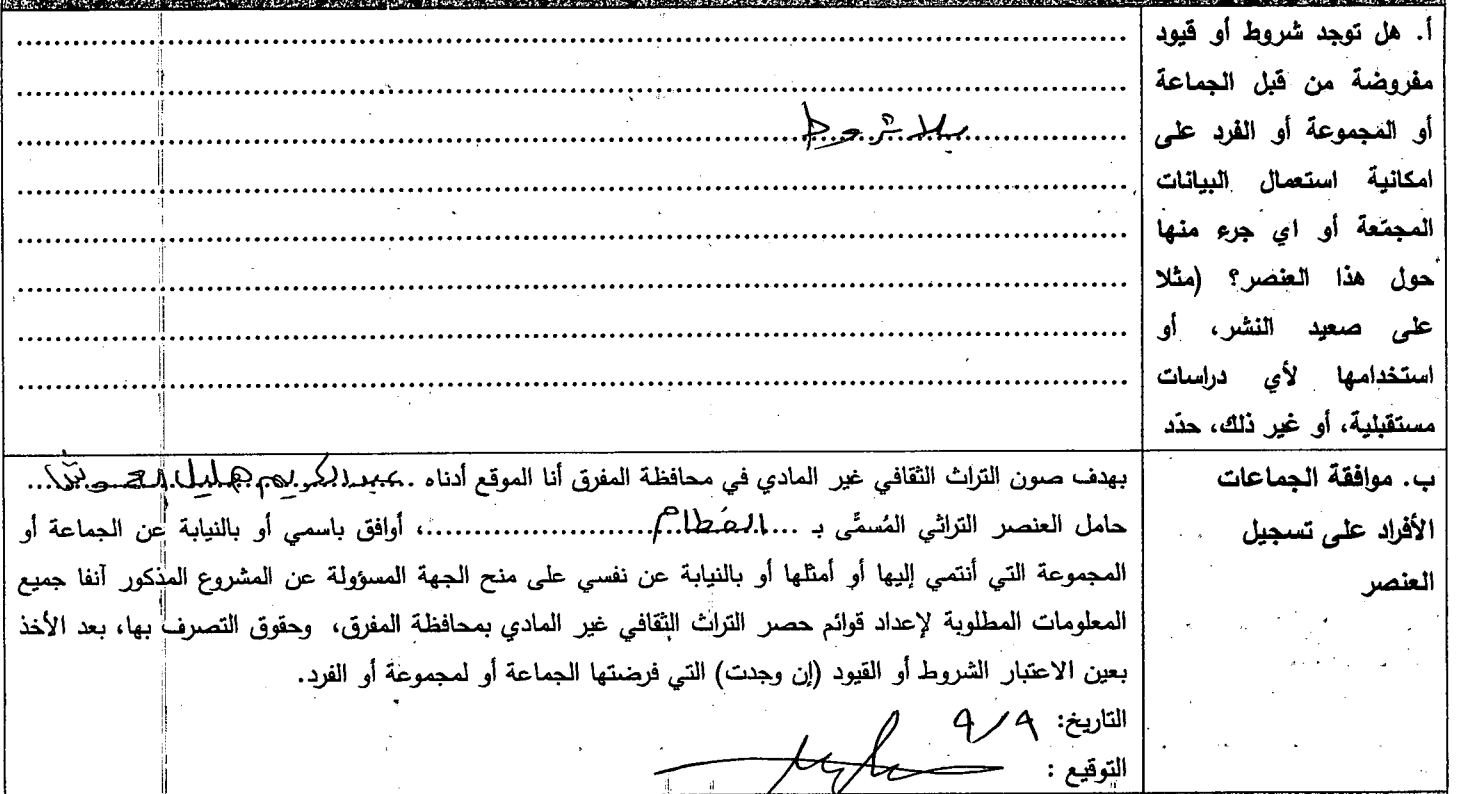 أ. هل توجد شروط أو قيود
مفروضة من قبل الجماعة
أو المجموعة أو الفرد على
امكانية استعمال البيانات
المجمّعة أو اي جرء منها
حول هذا العنصر؟ (مثلا
على صعيد النشر، أو
استخدامها لأي دراسات
مستقبلية، أو غير ذلك، حدّد
بلا شروط
ب. موافقة الجماعات
الأفراد على تسجيل
العنصر
بهدف صون التراث الثقافي غير المادي في محافظة المفرق أنا الموقع أدناه عبد الكريم هليل
حامل العنصر التراثي المُسمَّى بـ ...الفطام......................، أوافق باسمي أو بالنيابة عن الجماعة أو
المجموعة التي أنتمي إليها أو أمثلها أو بالنيابة عن نفسي على منح الجهة المسؤولة عن المشروع المذكور آنفا جميع
المعلومات المطلوبة لإعداد قوائم حصر التراث الثقافي غير المادي بمحافظة المفرق، وحقوق التصرف بها، بعد الأخذ
بعين الاعتبار الشروط أو القيود (إن وجدت) التي فرضتها الجماعة أو لمجموعة أو الفرد.
التاريخ: ٩/٩
التوقيع :